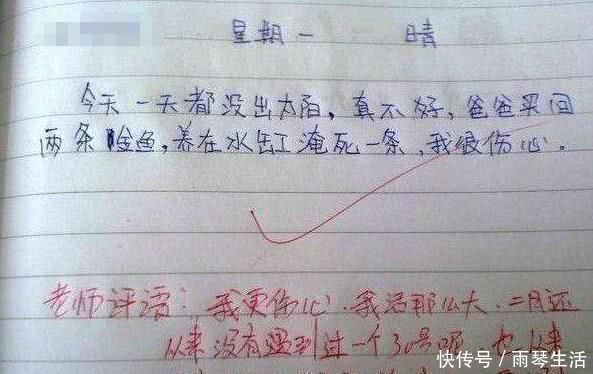 星期一 晴
今天一天都没出太阳,真不好,爸爸买回
两条金鱼,养在水缸淹死一条,我很伤心.
老师评语:我更伤心.我活那么大.二月还
从来没有遇到过一个30号呢.也从来
快传号/雨琴生活